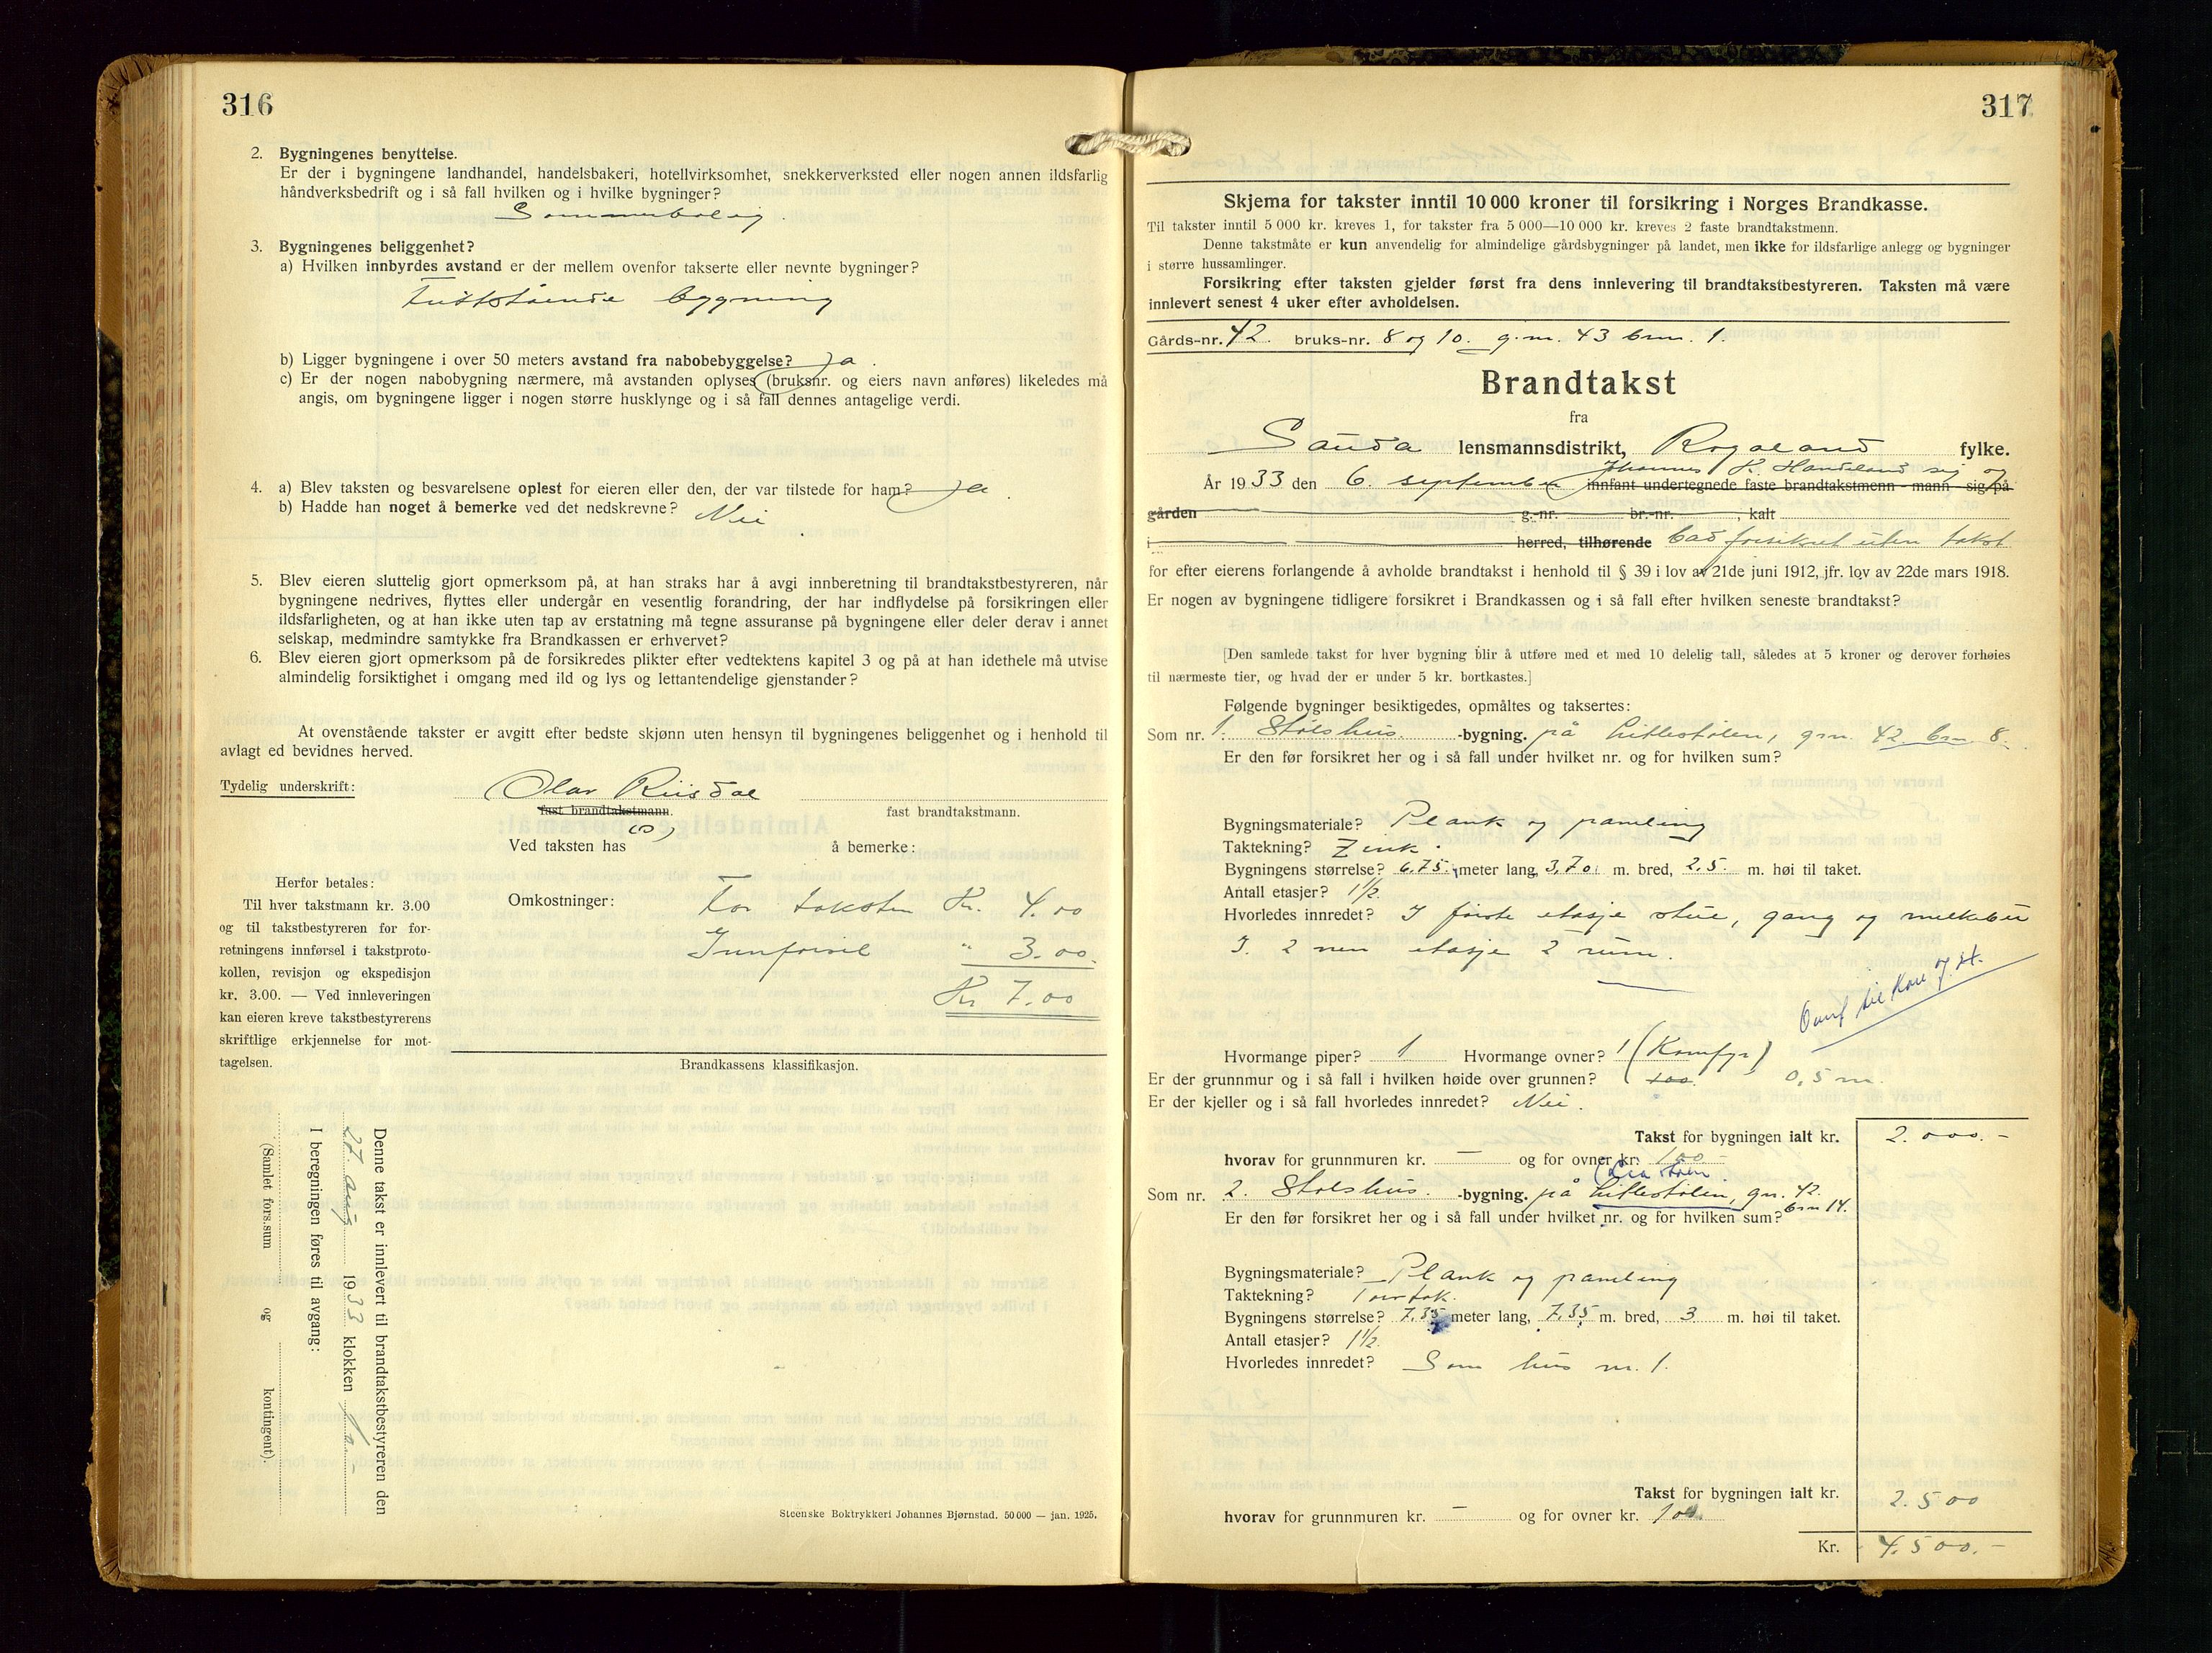 316
2. Bygningenes benyttelse.
Er der i bygningene landhandel, handelsbakeri, hotellvirksomhet, snekkerverksted eller nogen annen ildsfarlig
håndverksbedrift og i så fall hvilken og i hvilke bygninger?
Sommerbolig.
3. Bygningenes beliggenhet?
a) Hvilken innbyrdes avstand er der mellem ovenfor takserte eller nevnte bygninger?
Frittstående bygning
b) Ligger bygningene i over 50 meters avstand fra nabobebyggelse? Ja.
c) Er der nogen nabobygning nærmere, må avstanden oplyses (bruksnr. og eiers navn anføres) likeledes må
angis, om bygningene ligger i nogen større husklynge og i så fall dennes antagelige verdi.
4. a) Blev taksten og besvarelsene oplest for eieren eller den, der var tilstede for ham? Ja.
b) Hadde han noget å bemerke ved det nedskrevne? Nei
5. Blev eieren sluttelig gjort opmerksom på, at han straks har å avgi innberetning til brandtakstbestyreren, når
bygningene nedrives, flyttes eller undergår en vesentlig forandring, der har indflydelse på forsikringen eller
ildsfarligheten, og at han ikke uten tap av erstatning må tegne assuranse på bygningene eller deler derav i annet
selskap, medmindre samtykke fra Brandkassen er erhvervet?
6. Blev eieren gjort opmerksom på de forsikredes plikter efter vedtektens kapitel 3 og på at han idethele må utvise
almindelig forsiktighet i omgang med ild og lys og lettantendelige gjenstander?
At ovenstående takster er avgitt efter bedste skjønn uten hensyn til bygningenes beliggenhet og i henhold til
avlagt ed bevidnes herved.
Tydelig underskrift: Olav Riisdal
fast brandtakstmann. fast brandtakstmann.
(s)
Ved taksten has å bemerke:
Herfor betales:
Til hver takstmann kr. 3.00
og til takstbestyreren for for-
retningens innførsel i takstproto-
kollen, revisjon og ekspedisjon
kr. 3.00. — Ved innleveringen
kan eieren kreve takstbestyrerens
skriftlige erkjennelse for mot-
tagelsen.
Omkostninger: For taksten Kr. 4.00
Innførsel " 3.00.
Kr 7.00
Brandkassens klassifikasjon.
Denne takst er innlevert til brandtakstbestyreren den
27. aug 1933 klokken 10 -
I beregningen føres til avgang:
(Samlet fors.sum og kontingent).
Steenske Boktrykkeri Johannes Bjørnstad. 50 000 — jan. 1925.
317
Skjema for takster inntil 10 000 kroner til forsikring i Norges Brandkasse.
Til takster inntil 5 000 kr. kreves 1, for takster fra 5 000—10 000 kr. kreves 2 faste brandtakstmenn.
Denne takstmåte er kun anvendelig for almindelige gårdsbygninger på landet, men ikke for ildsfarlige anlegg og bygninger
i større hussamlinger.
Forsikring efter taksten gjelder først fra dens innlevering til brandtakstbestyreren. Taksten må være
innlevert senest 4 uker efter avholdelsen.
Gårds-nr. 42. bruks-nr. 8 og 10. g.nr. 43 brnr. 1.
Brandtakst
fra
Sauda lensmannsdistrikt, Rogaland fylke.
Johannes K. Handeland sig og
År 1933 den 6. september innfant undertegnede faste brandtakstmenn - mann - sig på
gården g.-nr. br.-nr. , kalt
i herred, tilhørende bad forsikret uten takst
for efter eierens forlangende å avholde brandtakst i henhold til § 39 i lov av 21de juni 1912, jfr. lov av 22de mars 1918.
Er nogen av bygningene tidligere forsikret i Brandkassen og i så fall efter hvilken seneste brandtakst?
[Den samlede takst for hver bygning blir å utføre med et med 10 delelig tall, således at 5 kroner og derover forhøies
til nærmeste tier, og hvad der er under 5 kr. bortkastes.]
Følgende bygninger besiktigedes, opmåltes og taksertes:
Som nr. 1. Stølshus. -bygning. på Litlestølen, gnr. 42. brn 8.
Er den før forsikret her og i så fall under hvilket nr. og for hvilken sum?
Bygningsmateriale? Plank og paneling
Taktekning? Zink.
Bygningens størrelse? 6,75. meter lang, 3,70. m. bred, 2,5. m. høi til taket.
Antall etasjer? 1½.
Hvorledes innredet? I første etasje stue, gang og melkebu
I. 2 nen etasje 2 rum.
Overf til Kare og st.
Hvormange piper? 1 Hvormange ovner? 1 (Komfyr)
Er der grunnmur og i så fall i hvilken høide over grunnen? 100. 0,5 m.
Er der kjeller og i så fall hvorledes innredet? Nei.
Takst for bygningen ialt kr. 2.000.-
hvorav for grunnmuren kr. — og for ovner kr. 100 -
Lia stølen
Som nr. 2. Stølshus. -bygning. på Litlestølen, gnr. 42.
brn 14.
Er den før forsikret her og i så fall under hvilket nr. og for hvilken sum?
Bygningsmateriale? Plank og paneling
Taktekning? Torvtak.
Bygningens størrelse? 7,35 meter lang, 7,35 m. bred, 3 m. høi til taket.
Antall etasjer? 1½.
Hvorledes innredet? Som hus nr. 1.
Takst for bygningen ialt kr. 2.500
hvorav for grunnmuren kr. — og for ovner kr. 100.
Kr. 4.500.-